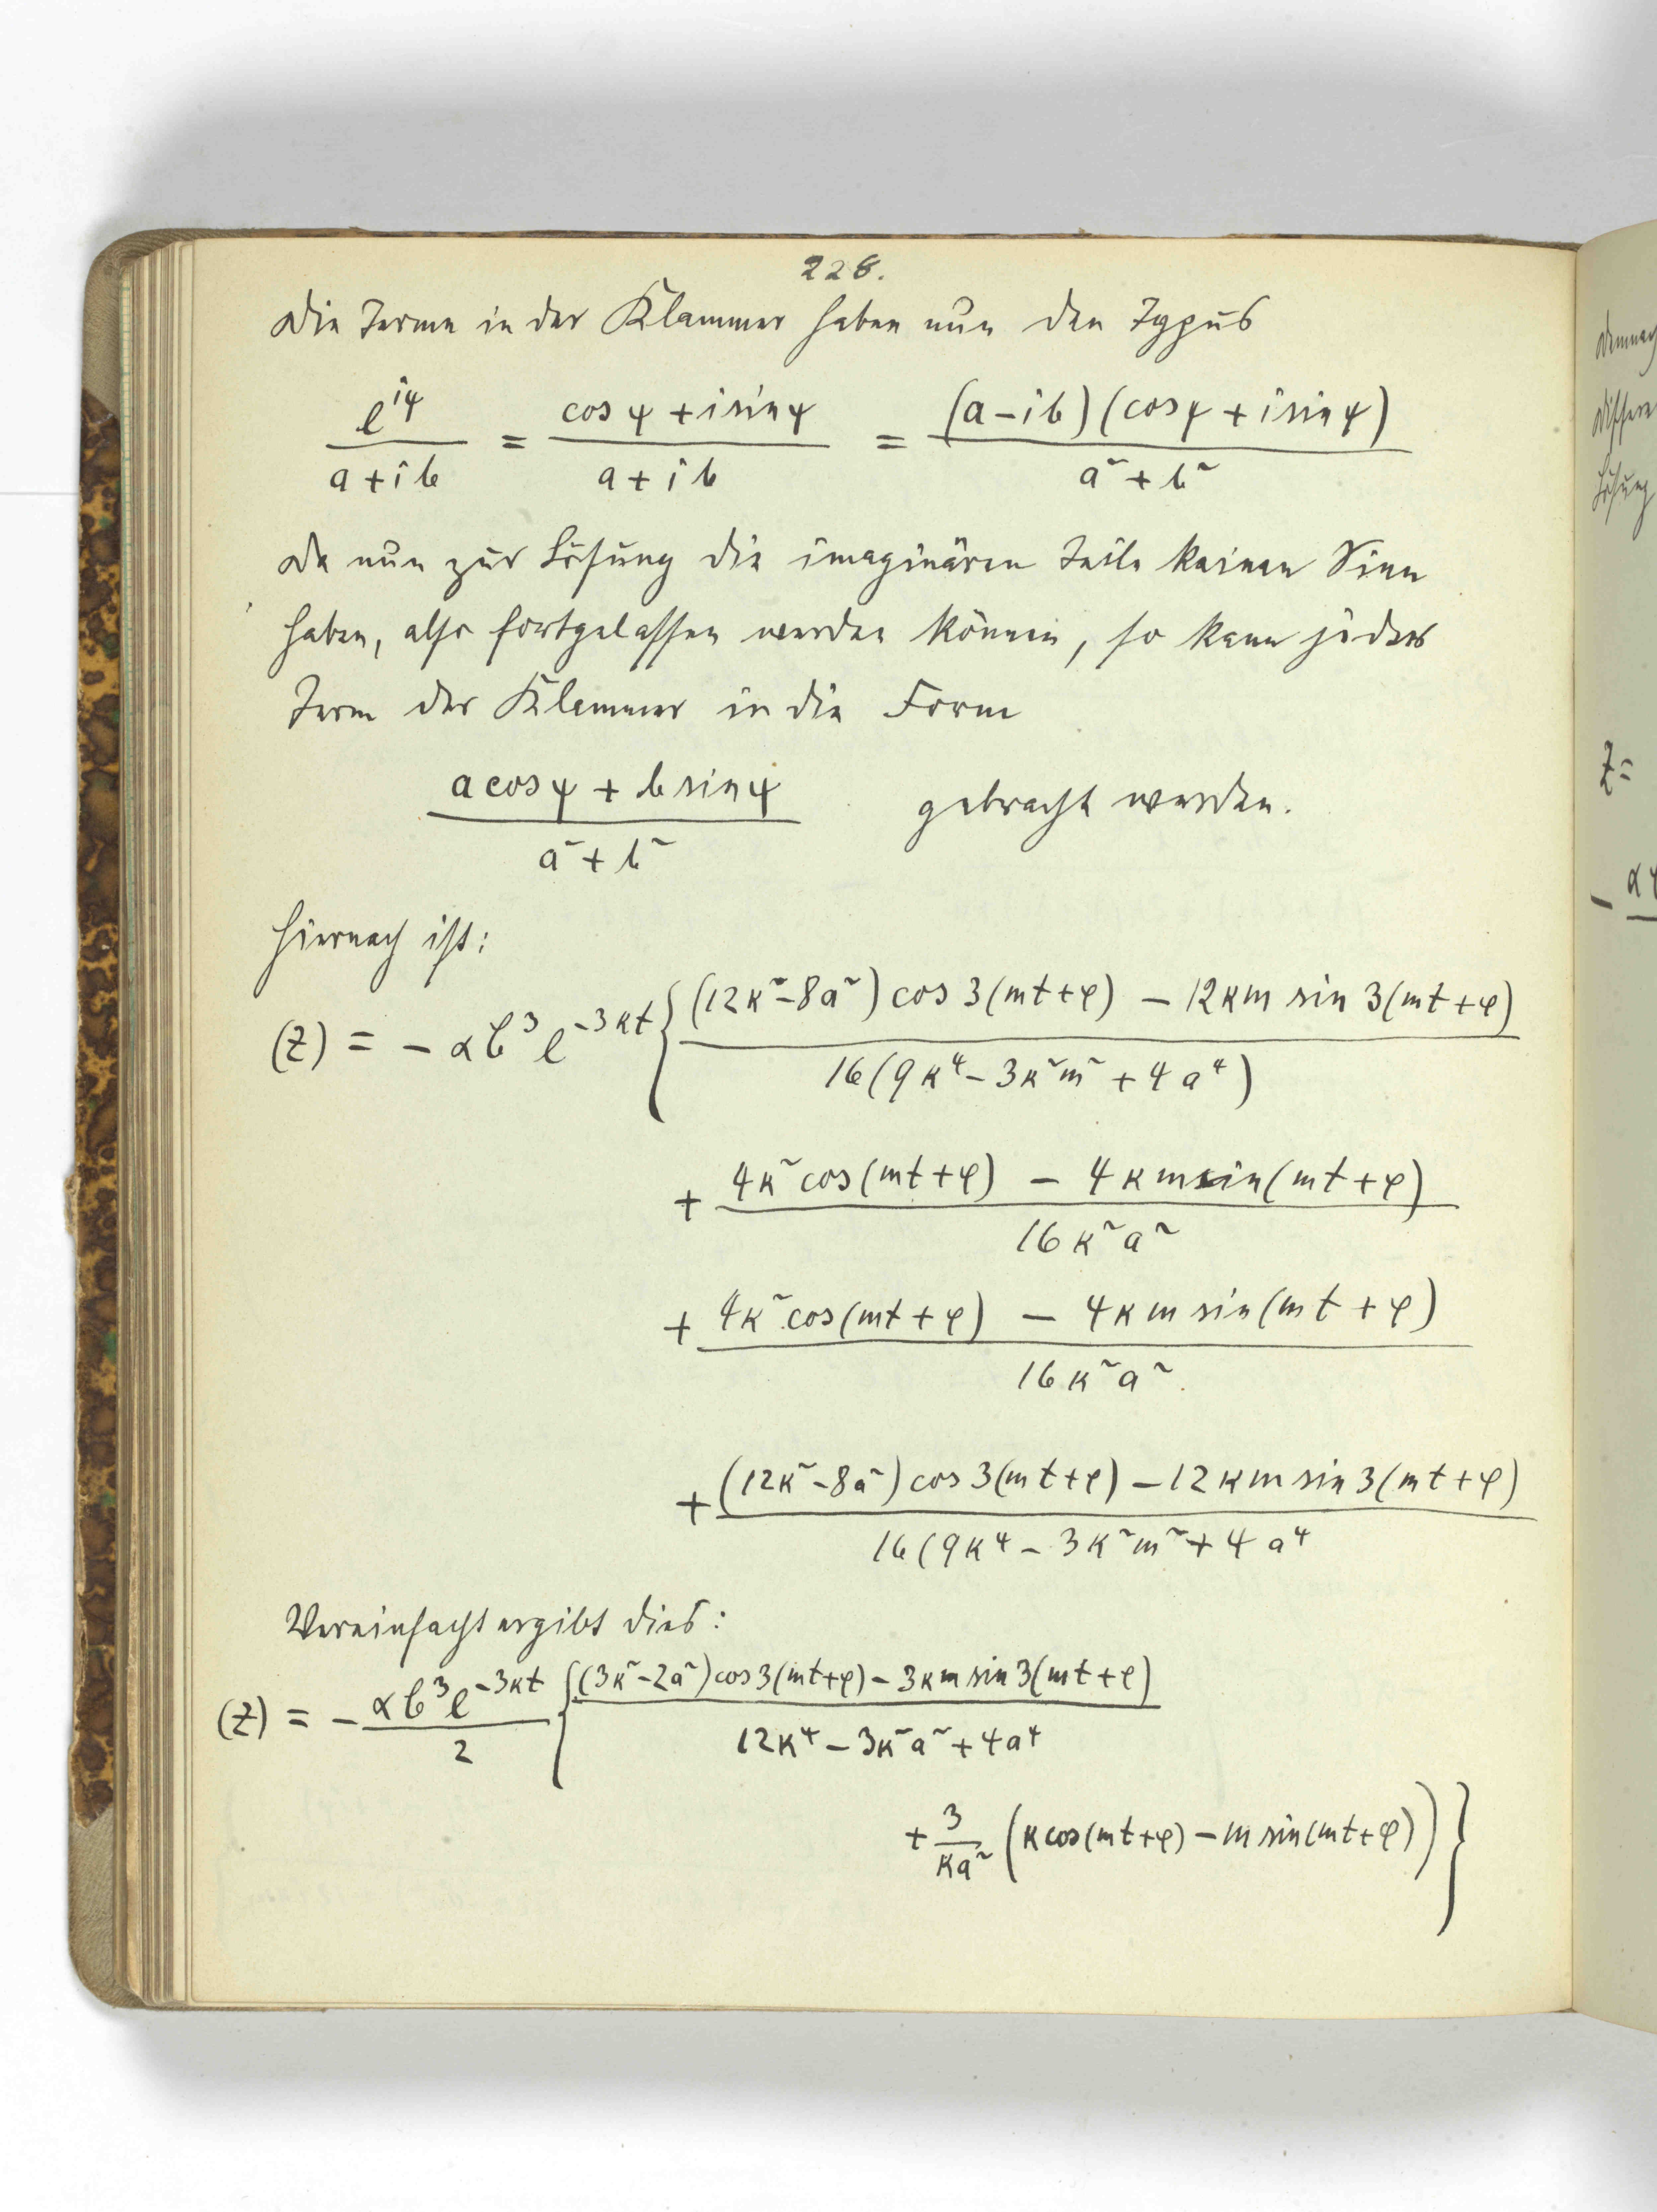 228.
Die Terme in der Klammer haben nun den Typus
e^{iψ}/(a+ib) = (cos ψ + i sin ψ)/(a+ib) = (a−ib)(cos ψ + i sin ψ)/(a²+b²)
Da nun zur Lösung die imaginären Teile keinen Sinn
haben, also fortgelassen werden können, so kann jeder
Term der Klammer in die Form
(a cos ψ + b sin ψ)/(a²+b²) gebracht werden.
Hiernach ist:
(z) = − αb³e^{−3κt} { ((12κ²−8a²) cos 3(mt+φ) − 12κm sin 3(mt+φ))/(16(9κ⁴−3κ²m²+4a⁴))
+ (4κ² cos(mt+φ) − 4κm sin(mt+φ))/(16κ²a²)
+ (4κ² cos(mt+φ) − 4κm sin(mt+φ))/(16κ²a²)
+ ((12κ²−8a²) cos 3(mt+φ) − 12κm sin 3(mt+φ))/(16(9κ⁴−3κ²m²+4a⁴
Vereinfacht ergibt dies:
(z) = − (αb³e^{−3κt})/2 { ((3κ²−2a²) cos 3(mt+φ) − 3κm sin 3(mt+φ))/(12κ⁴−3κ²a²+4a⁴)
+ 3/(κa²) (κ cos(mt+φ) − m sin(mt+φ)) }
Demnach
Lösung
z=